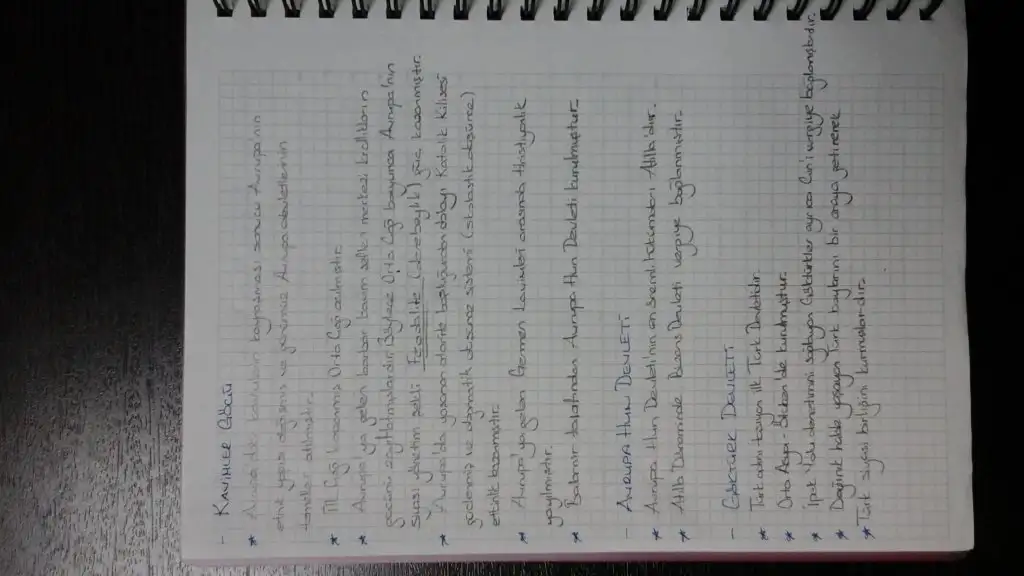 - KAVİMLER GÖÇÜ
* Avrupa'daki kavimlerin kaynaşması sonucu Avrupa'nın
etnik yapısı değişmiş ve günümüz Avrupa devletlerinin
temelleri atılmıştır.
* İlk Çağ kapanmış Orta Çağ açılmıştır.
* Avrupa'ya gelen barbar kavim saltık merkezi krallıkların
gücünü zayıflatmışlardır. Böylece Orta Çağ boyunca Avrupa'nın
siyasi yönetim şekli Feodalite (derebeylik) güç kazanmıştır.
* Avrupa'da yaşanan otorite boşluğundan dolayı Katolik Kilisesi
güçlenmiş ve dogmatik düşünce sistemi (skolastik düşünce)
etkinlik kazanmıştır.
* Avrupa'ya gelen Germen kavimleri arasında Hristiyanlık
yayılmıştır.
* Balamir tarafından Avrupa Hun Devleti kurulmuştur.
- AVRUPA HUN DEVLETİ
* Avrupa Hun Devleti'nin en önemli hükümdarı Atilla'dır.
* Atilla Döneminde Bizans Devleti vergiye bağlanmıştır.
- GÖKTÜRK DEVLETİ
* Türk adını taşıyan ilk Türk Devletidir.
* Orta Asya - Ötüken'de kurulmuştur.
* İpek Yolu denetimini sağlayan Göktürkler ayrıca Çin'i vergiye bağlamışlardır.
* Dağınık halde yaşayan Türk boylarını bir araya getirerek
* Türk siyasi birliğini kurmuşlardır.